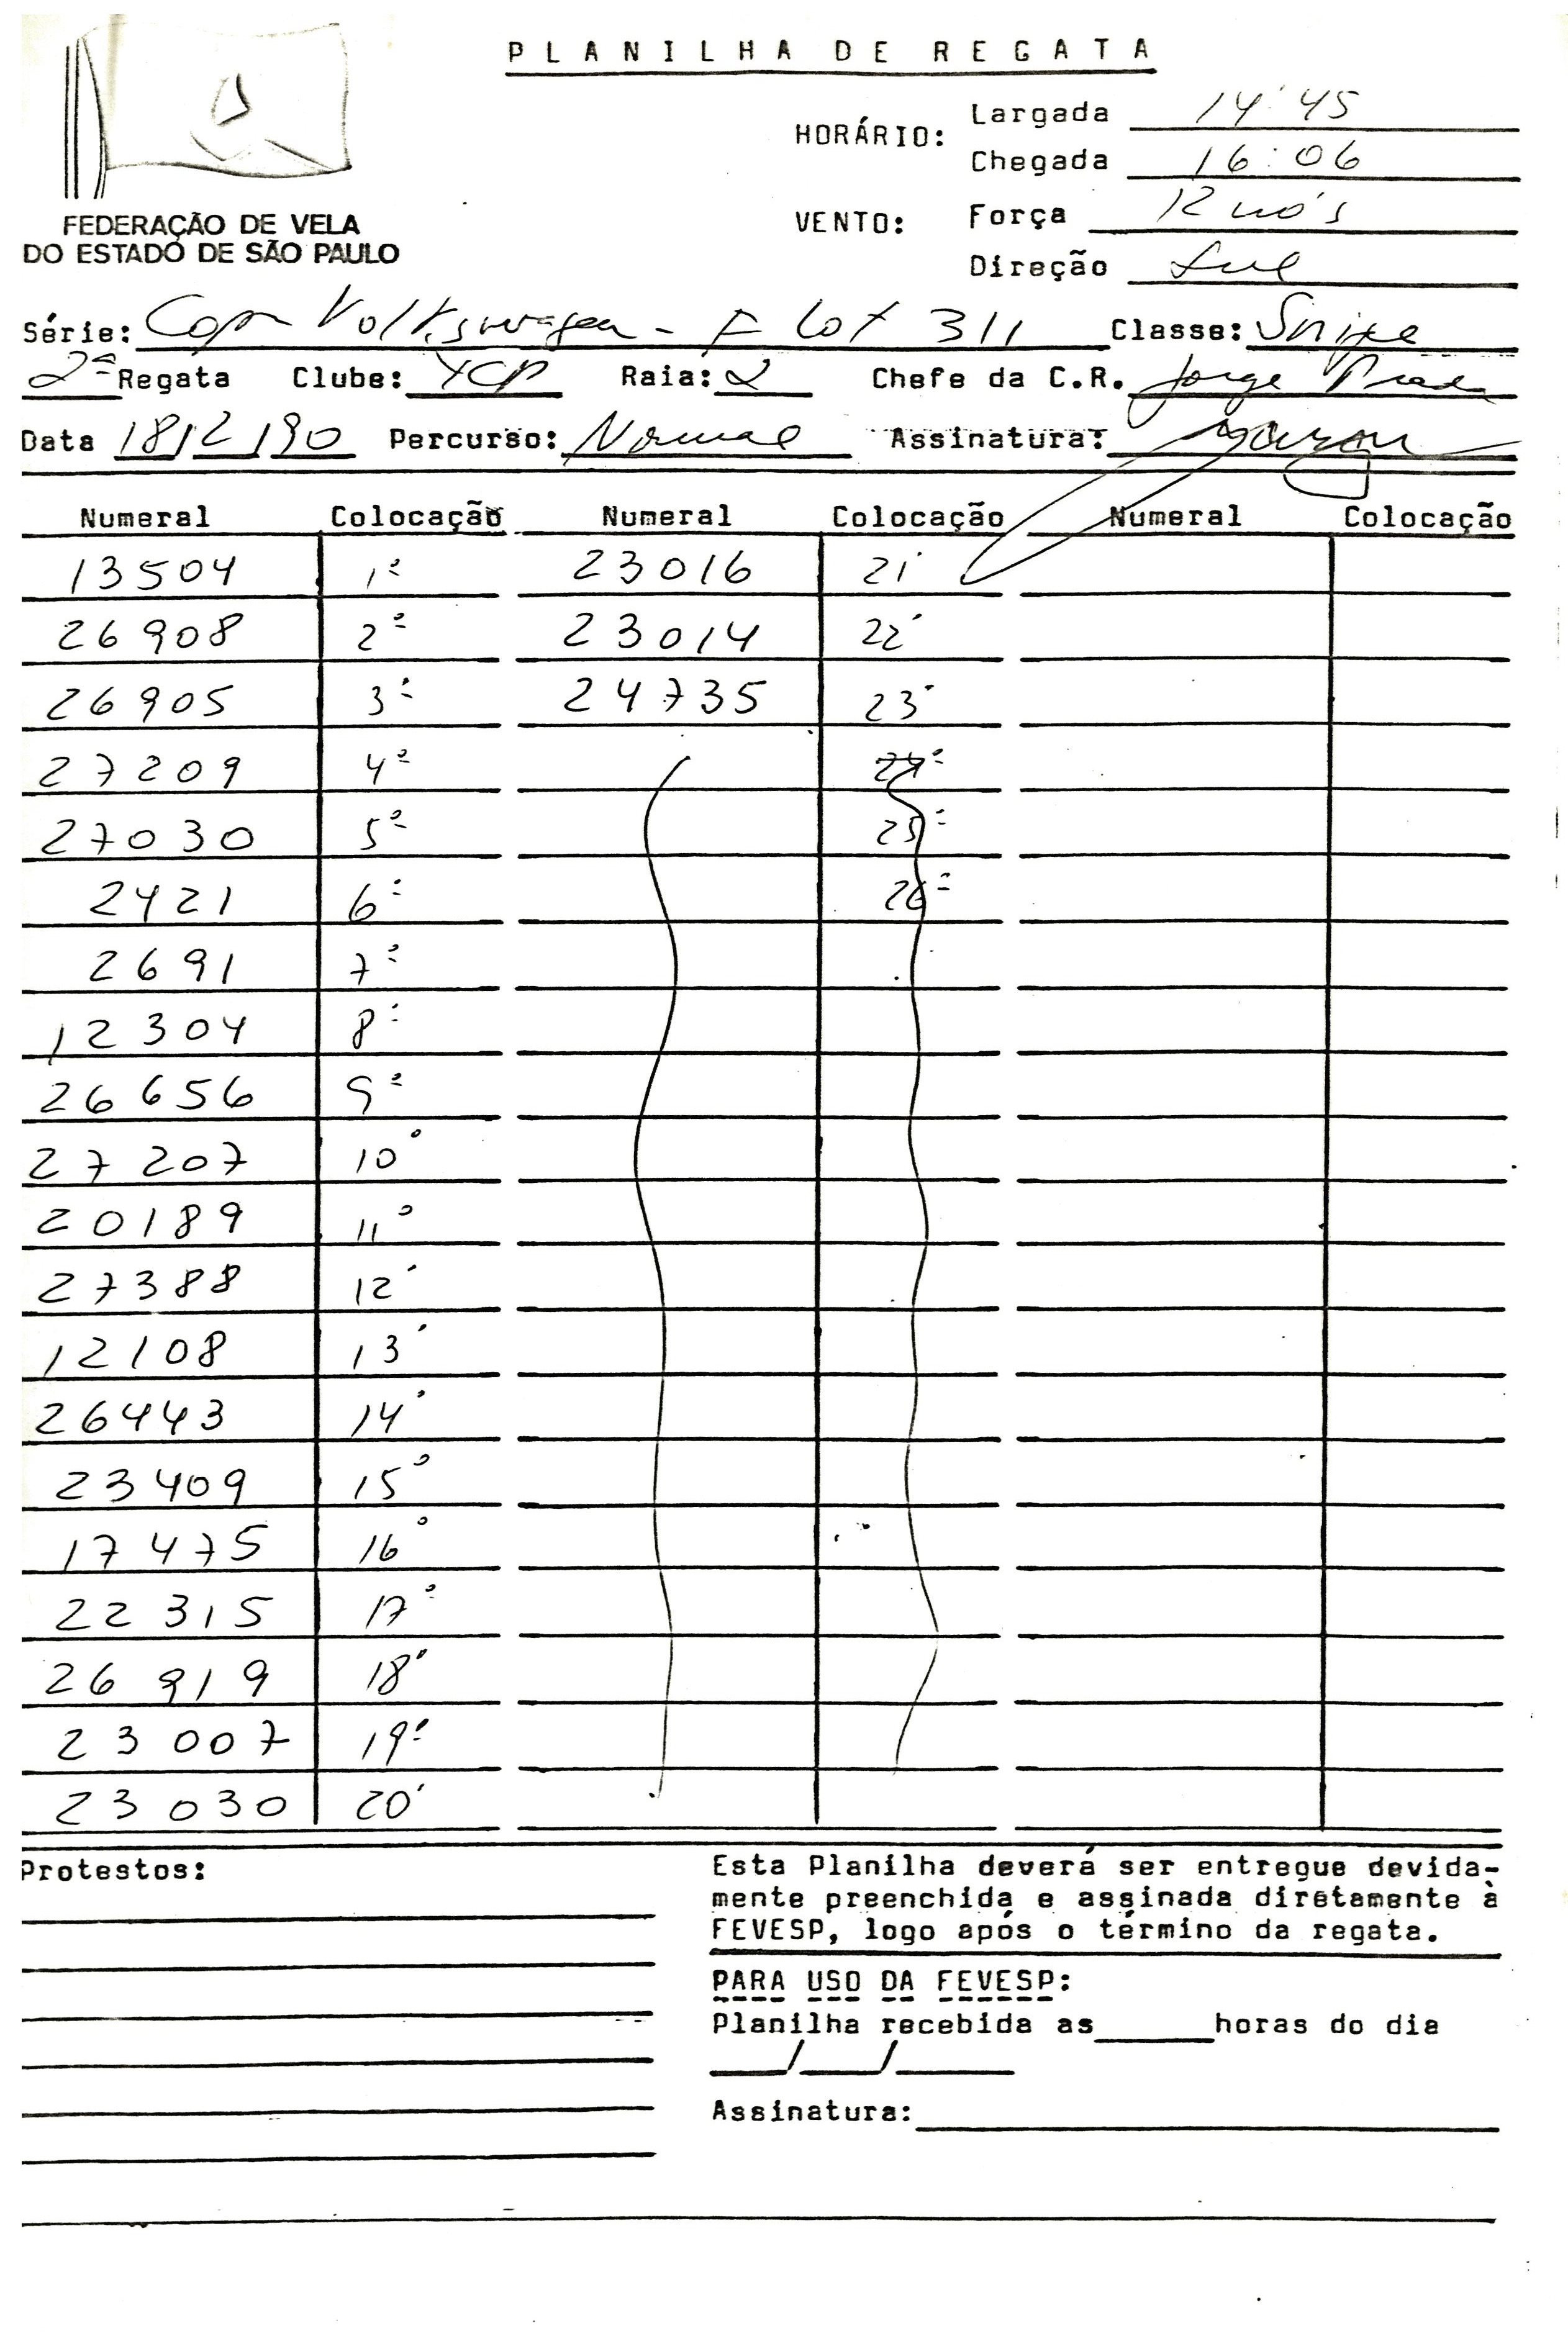 PLANILHA DE REGATA
FEDERAÇÃO DE VELA
DO ESTADO DE SÃO PAULO
HORÁRIO: Largada 14:45
Chegada 16:06
VENTO: Força 12 nós
Direção Sul
Série: Copa Volkswagen - F lot 311 Classe: Snipe
2ª Regata Clube: YCP Raia: 2 Chefe da C.R. Jorge
Data 18/2/90 Percurso: Normal Assinatura:
Numeral Colocação Numeral Colocação Numeral Colocação
13504 1º 23016 21º
26908 2º 23014 22º
26905 3º 24735 23º
27209 4º 24º
27030 5º 25º
2421 6º 26º
2691 7º
12304 8º
26656 9º
27207 10º
20189 11º
27388 12º
12108 13º
26443 14º
23409 15º
17475 16º
22315 17º
26919 18º
23007 19º
23030 20º
Protestos:
Esta Planilha deverá ser entregue devida-
mente preenchida e assinada diretamente à
FEVESP, logo após o término da regata.
PARA USO DA FEVESP:
Planilha recebida as______horas do dia
___/___/___
Assinatura: